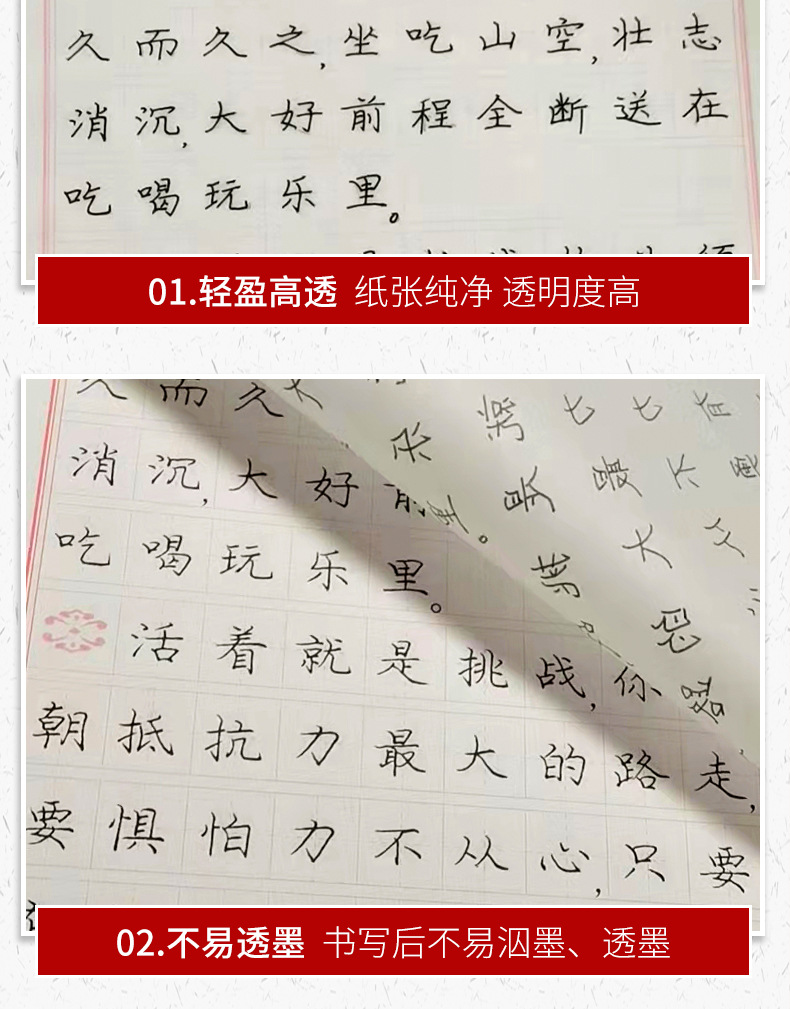 久而久之,坐吃山空,壮志
消沉,大好前程全断送在
吃喝玩乐里。
01.轻盈高透 纸张纯净 透明度高
久而久
消沉,大好前
吃喝玩乐里。
活着就是挑战,你
朝抵抗力最大的路走,
要惧怕力不从心,只要
02.不易透墨 书写后不易洇墨、透墨